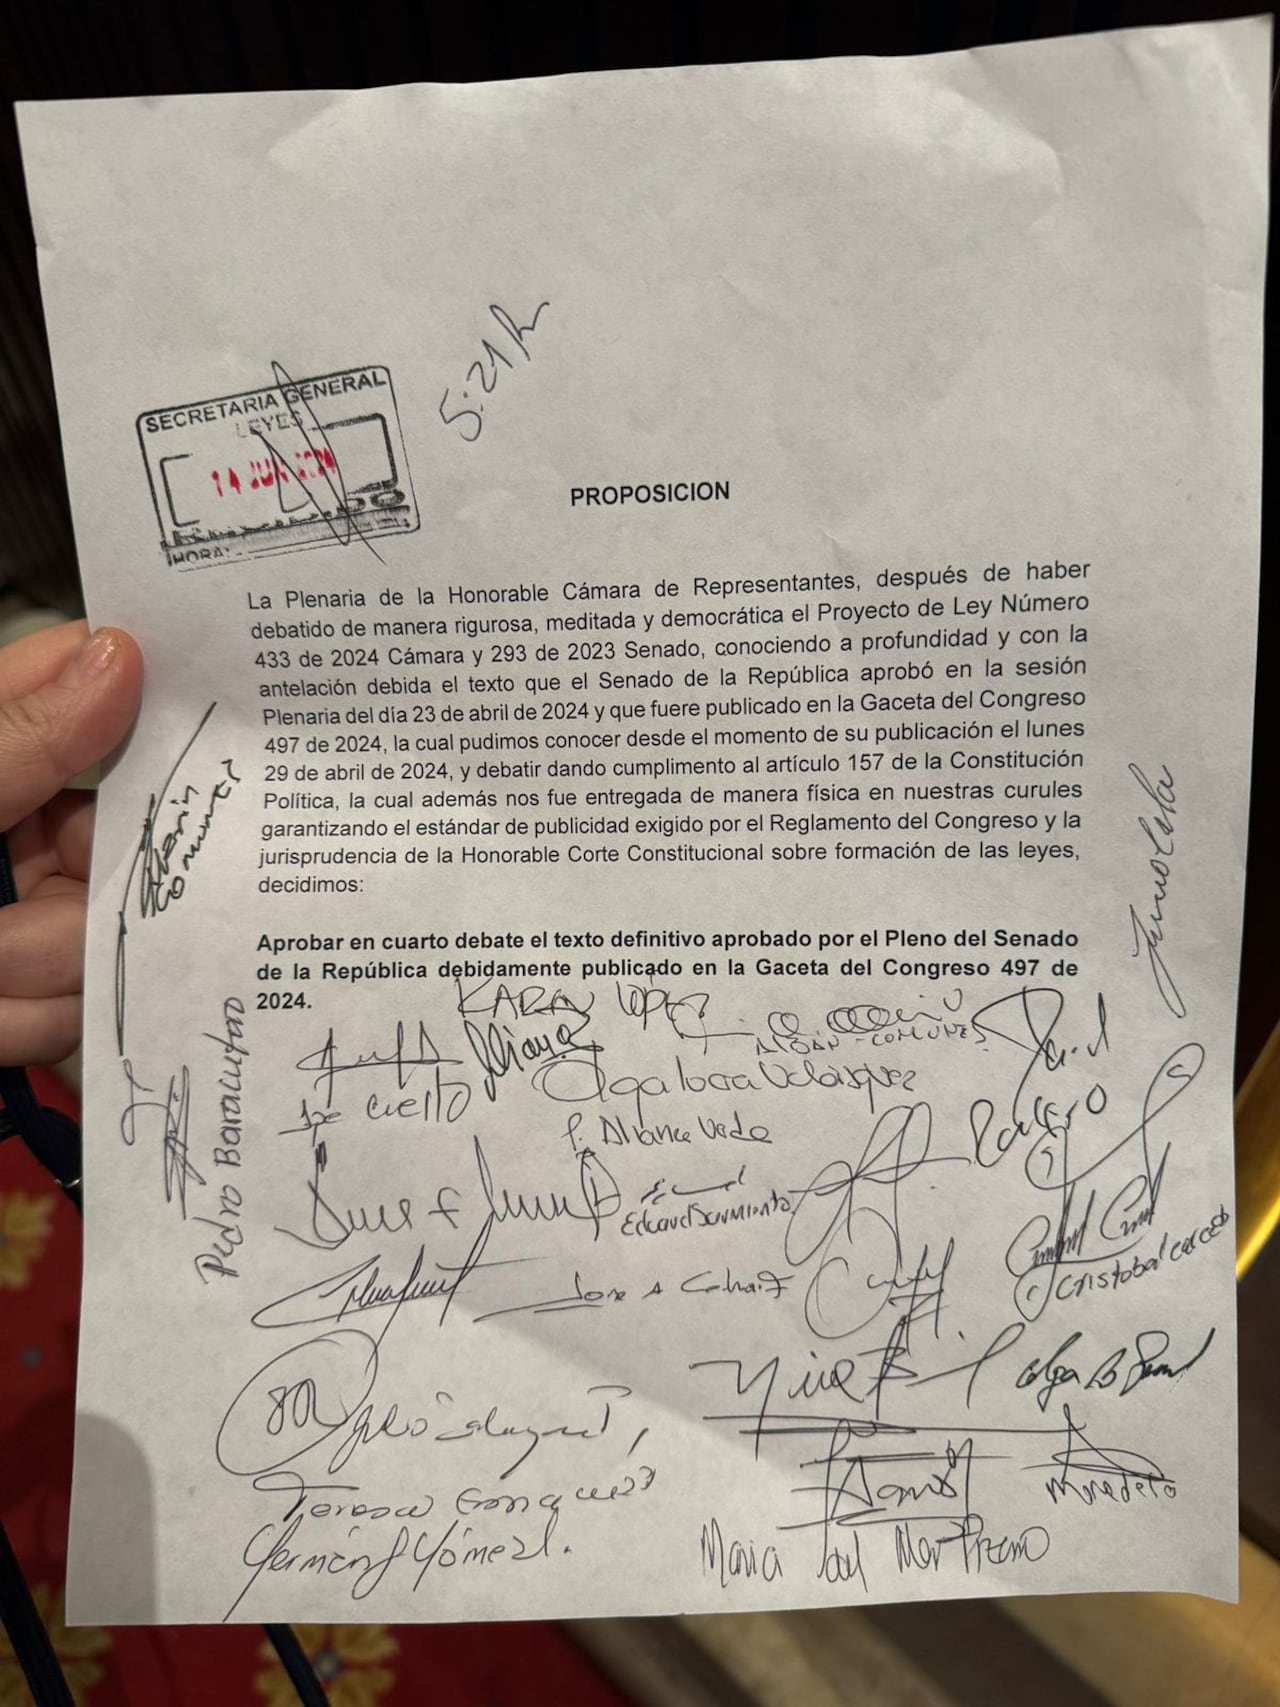 5:21 Pm
SECRETARIA GENERAL
LEYES
14 JUN 2024
HORA:
PROPOSICION
La Plenaria de la Honorable Cámara de Representantes, después de haber
debatido de manera rigurosa, meditada y democrática el Proyecto de Ley Número
433 de 2024 Cámara y 293 de 2023 Senado, conociendo a profundidad y con la
antelación debida el texto que el Senado de la República aprobó en la sesión
Plenaria del día 23 de abril de 2024 y que fuere publicado en la Gaceta del Congreso
497 de 2024, la cual pudimos conocer desde el momento de su publicación el lunes
29 de abril de 2024, y debatir dando cumplimento al artículo 157 de la Constitución
Política, la cual además nos fue entregada de manera física en nuestras curules
garantizando el estándar de publicidad exigido por el Reglamento del Congreso y la
jurisprudencia de la Honorable Corte Constitucional sobre formación de las leyes,
decidimos:
Aprobar en cuarto debate el texto definitivo aprobado por el Pleno del Senado
de la República debidamente publicado en la Gaceta del Congreso 497 de
2024.
KAREN LÓPEZ
ALBÁN - COMUNES
Olga Lucia Velásquez
P. Alianza Verde
Pedro Baracutao
Comunes
David
Racero
Cristobal Caicedo
Germán Gómez
Maria del Mar Pizarro